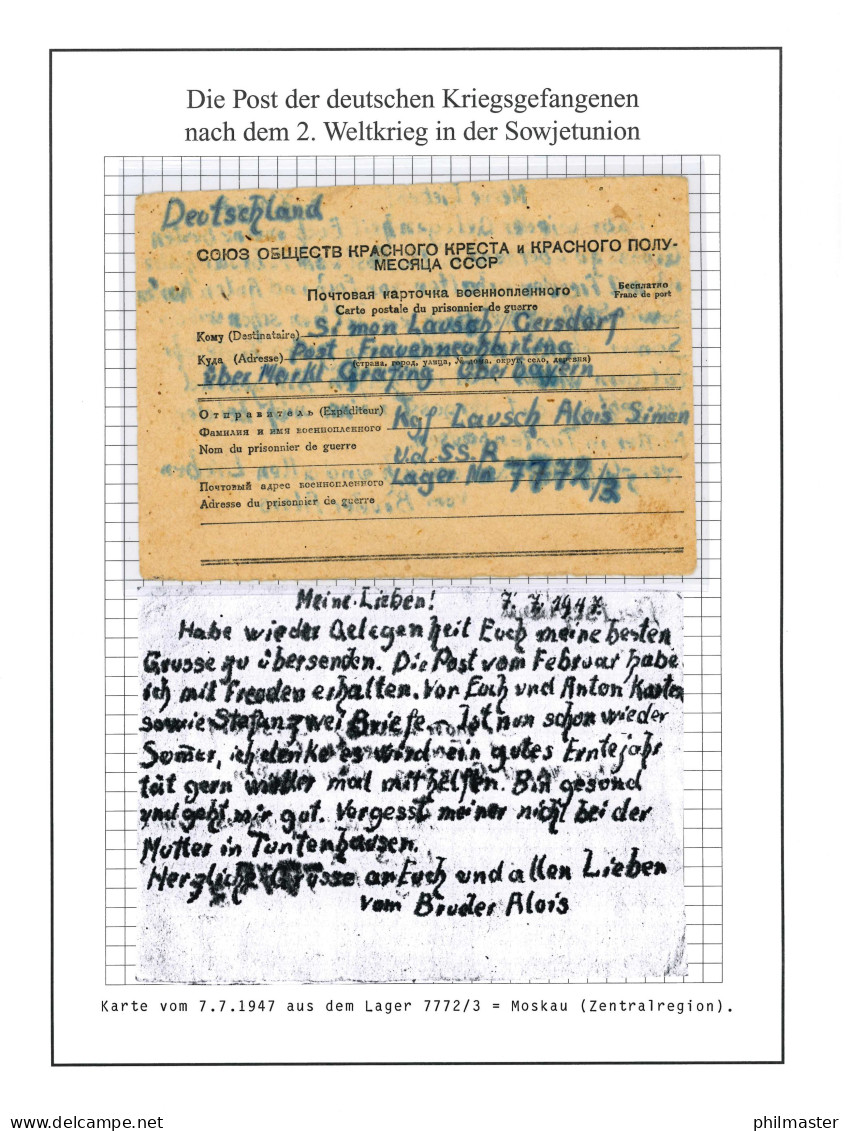 Die Post der deutschen Kriegsgefangenen
nach dem 2. Weltkrieg in der Sowjetunion
Deutschland
СОЮЗ ОБЩЕСТВ КРАСНОГО КРЕСТА и КРАСНОГО ПОЛУ-
МЕСЯЦА СССР
Почтовая карточка военнопленного
Бесплатно
Carte postale du prisonnier de guerre
Franc de port
Кому (Destinataire) Simon Lausch Gersdorf
Куда (Adresse) Post Frauenneuharting
(страна, город, улица, № дома, округ, село, деревня)
über Markt Grafing Oberbayern
Отправитель (Expéditeur)
Фамилия и имя военнопленного Kgf Lausch Alois Siman
Nom du prisonnier de guerre
U.d.SS.R
Почтовый адрес военнопленного Lager Nr 7772/3
Adresse du prisonnier de guerre
Meine Lieben! 7. 7. 1947
Habe wieder Gelegenheit Euch meine besten
Grüsse zu übersenden. Die Post vom Februar habe
ich mit Freuden erhalten. Von Euch und Anton Karten
sowie Stefan zwei Briefe. Ist nun schon wieder
Somer, ich denke es wird ein gutes Erntejahr
tät gern wieder mal mithelfen. Bin gesund
und geht mir gut. Vergesst meiner nicht bei der
Mutter in Tuntenhausen.
Herzliche Grüsse an Euch und allen Lieben
vom Bruder Alois
Karte vom 7.7.1947 aus dem Lager 7772/3 = Moskau (Zentralregion).
www.delcampe.net
philmaster